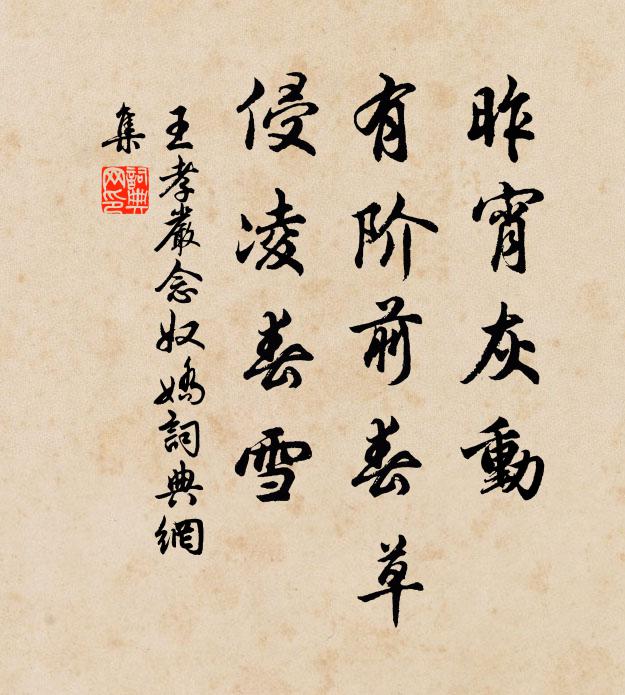 昨宵灰動
有阶前春草
侵凌春雪
王孝嚴念奴嬌詞典網
集
詞典网印